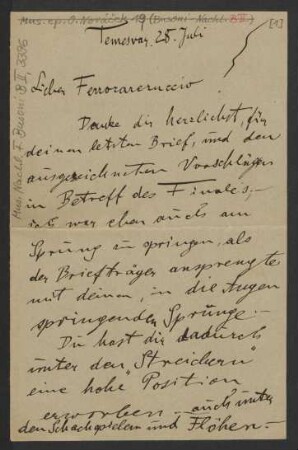 Mus. ep. O. Novácek 19 (Busoni-Nachl. B II)
[1]
Mus. Nachl. F. Busoni B II, 3336
Temesvar, 28. Juli
Lieber Ferrorareruccio.
Danke dir herzlichst, für
deinen letzten Brief, und den
ausgezeichneten Vorschlägen
in Betreff des Finales, –
ich war eben auch am
Sprung zu springen, als
der Briefträger ansprengte
mit deinen, in die Augen
springenden Sprünge. –
Du hast dir dadurch
unter den „Streichern"
eine hohe Position
erworben – auch unter
den Schachspielern und Flöhen –